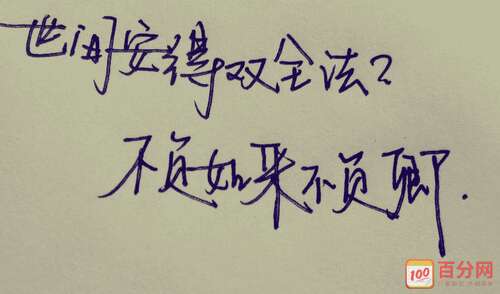 世间安得双全法?
不负如来不负卿.
100 百分网